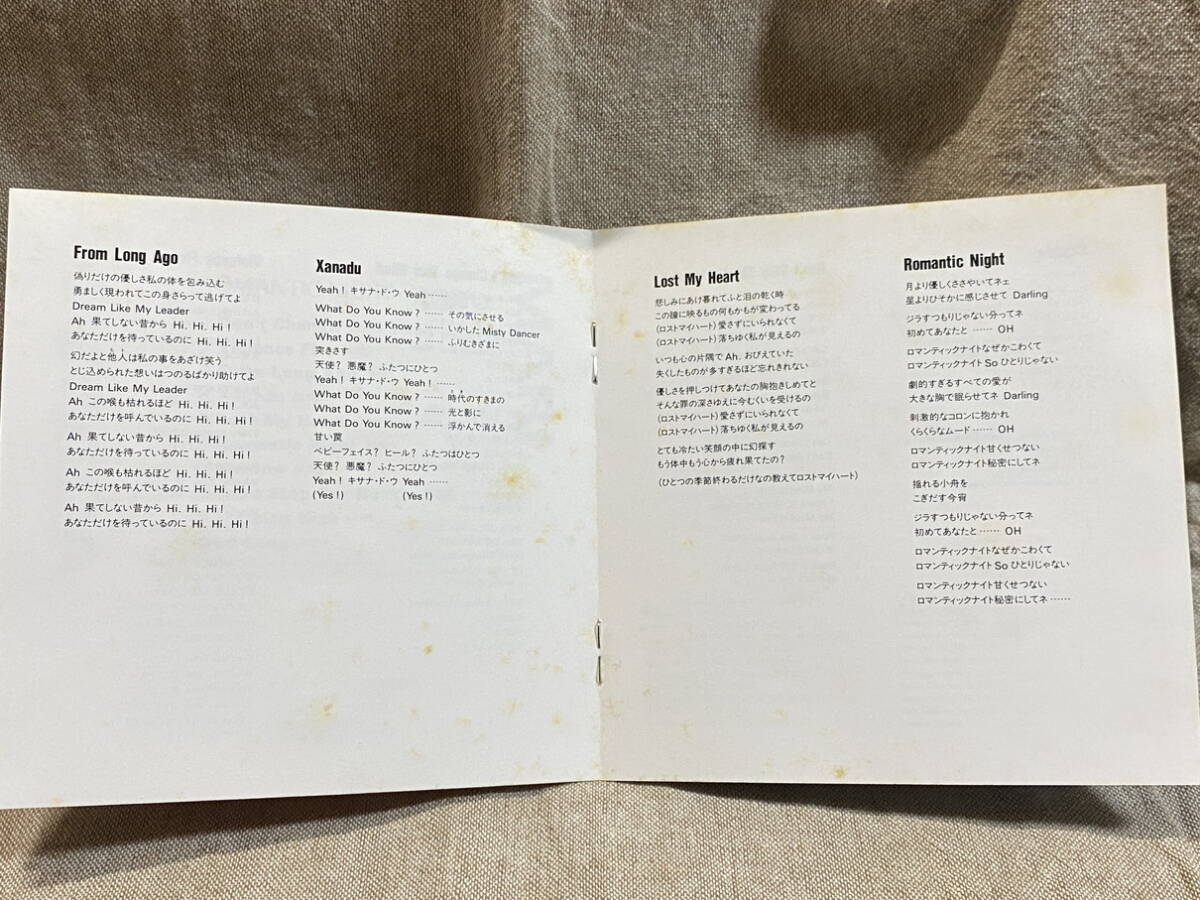 From Long Ago
偽りだけの優しさ私の体を包み込む
勇ましく現われてこの身さらって逃げてよ
Dream Like My Leader
Ah 果てしない昔から Hi. Hi. Hi!
あなただけを待っているのに Hi. Hi. Hi!
幻だよと他人は私の事をあざけ笑う
とじ込められた想いはつのるばかり助けてよ
Dream Like My Leader
Ah この喉も枯れるほど Hi. Hi. Hi!
あなただけを呼んでいるのに Hi. Hi. Hi!
Ah 果てしない昔から Hi. Hi. Hi!
あなただけを待っているのに Hi. Hi. Hi!
Ah この喉も枯れるほど Hi. Hi. Hi!
あなただけを呼んでいるのに Hi. Hi. Hi!
Ah 果てしない昔から Hi. Hi. Hi!
あなただけを待っているのに Hi. Hi. Hi!
Xanadu
Yeah! キサナ・ド・ウ Yeah ……
What Do You Know? …… その気にさせる
What Do You Know? …… いかした Misty Dancer
What Do You Know? …… ふりむきざまに
突きさす
天使? 悪魔? ふたつにひとつ
Yeah! キサナ・ド・ウ Yeah! ……
What Do You Know? …… 時代のすきまの
What Do You Know? …… 光と影に
What Do You Know? …… 浮かんで消える
甘い罠
ベビーフェイス? ヒール? ふたつはひとつ
天使? 悪魔? ふたつにひとつ
Yeah! キサナ・ド・ウ Yeah ……
(Yes!) (Yes!)
Lost My Heart
悲しみにあけ暮れてふと泪の乾く時
この瞳に映るもの何もかもが変わってる
(ロストマイハート) 愛さずにいられなくて
(ロストマイハート) 落ちゆく私が見えるの
いつも心の片隅で Ah. おびえていた
失くしたものが多すぎるほど忘れきれない
優しさを押しつけてあなたの胸抱きしめてと
そんな罪の深さゆえに今むくいを受けるの
(ロストマイハート) 愛さずにいられなくて
(ロストマイハート) 落ちゆく私が見えるの
とても冷たい笑顔の中に幻探す
もう体中もう心から疲れ果てたの?
(ひとつの季節終わるだけなの教えてロストマイハート)
Romantic Night
月より優しくささやいてネェ
星よりひそかに感じさせて Darling
ジラすつもりじゃない分ってネ
初めてあなたと …… OH
ロマンティックナイトなぜかこわくて
ロマンティックナイト So ひとりじゃない
劇的すぎるすべての愛が
大きな胸で眠らせてネ Darling
刺激的なコロンに抱かれ
くらくらなムード …… OH
ロマンティックナイト甘くせつない
ロマンティックナイト秘密にしてネ
揺れる小舟を
こぎだす今宵
ジラすつもりじゃない分ってネ
初めてあなたと …… OH
ロマンティックナイトなぜかこわくて
ロマンティックナイト So ひとりじゃない
ロマンティックナイト甘くせつない
ロマンティックナイト秘密にしてネ ……